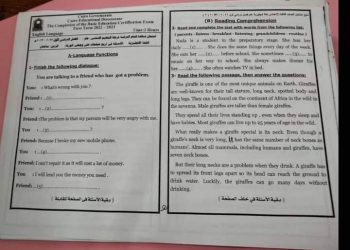 Cairo Governorate
Cairo Educational Directorate
The Completion of the Basic Education Certificate Exam
First Term 2022 - 2023
English Language
Time : 2 Hours
A-Language Functions
1- Finish the following dialogue:
You are talking to a friend who has got a problem.
You : What's wrong with you?
Friend : (1)
You : (2) ?
Friend :The problem is that my parents will be very angry with me.
You : (3) ?
Friend: Because I broke my new mobile phone.
You : (4)
Friend: I can't repair it as it will cost a lot of money.
You : I will lend you the money you need .
Friend: (5)
(B) Reading Comprehension
2- Read and complete the text with words from the following list.
( parents - listens - breakfast - listening - grandchildren - routine )
Nada is a student in the preparatory stage. She has her
daily (1) . She does the same things every day of the week.
She eats her (2) before school. She sometimes (3) to
music on her way to school. She always makes dinner for
her (4) . She often watches TV in bed.
3- Read the following passage, then answer the questions:
The giraffe is one of the most unique animals on Earth. Giraffes
are well-known for their tall stature, long neck, spotted body and
long legs. They can be found on the continent of Africa in the wild in
the savanna. Male giraffes are taller than female giraffes.
They spend all their lives standing up , even when they sleep and
have babies. Most giraffes can live up to 25 years of age in the wild.
What really makes a giraffe special is its neck. Even though a
giraffe's neck is very long, it has the same number of neck bones as
humans'. Almost all mammals, including humans and giraffes, have
seven neck bones.
But their long necks are a problem when they drink. A giraffe has
to spread its front legs apart so its head can reach the ground to
drink water. Luckily, the giraffes can go many days without
drinking.